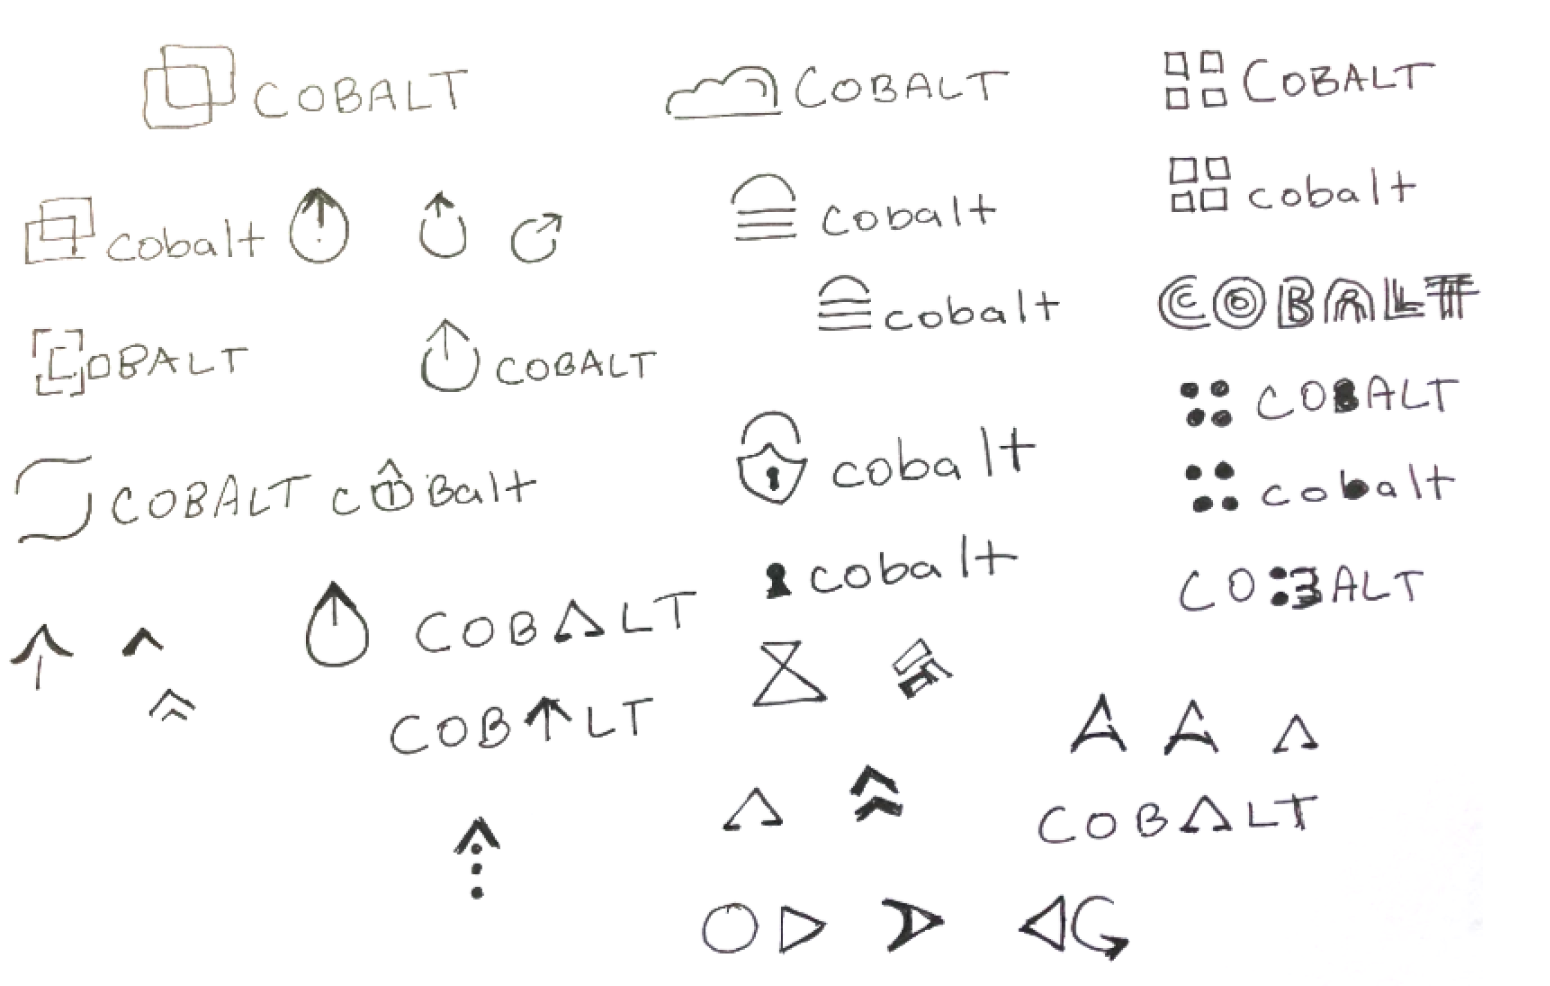 COBALT
COBALT
COBALT
cobalt
cobalt
cobalt
cobalt
COBALT
COBALT
COBALT
COBALT
cobalt
COBALT
coBalt
cobalt
cobalt
COBALT
cobalt
COBALT
COBALT
A A A
COBALT